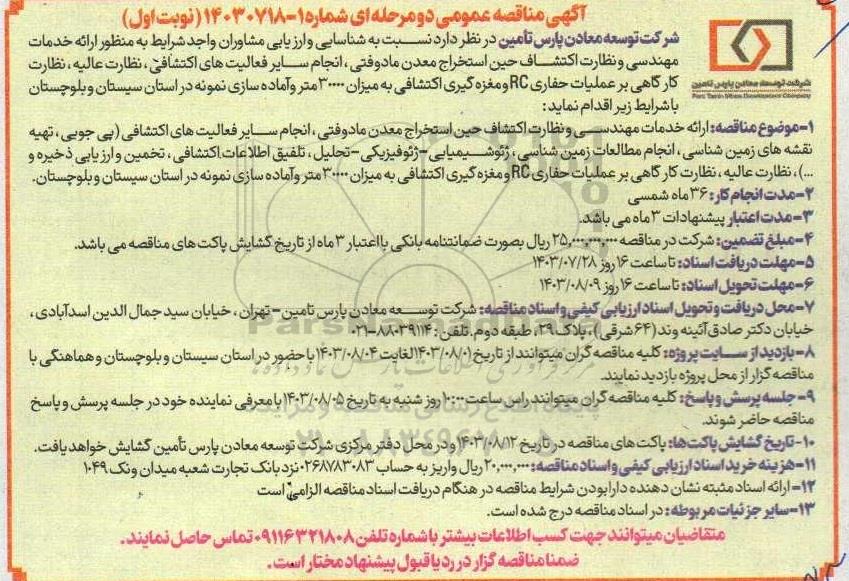 آگهی مناقصه عمومی دو مرحله ای شماره ۱-۱۴۰۳۰۷۱۸ (نوبت اول)
شرکت توسعه معادن پارس تأمین در نظر دارد نسبت به شناسایی و ارزیابی مشاوران واجد شرایط به منظور ارائه خدمات
مهندسی و نظارت اکتشاف حین استخراج معدن مادوفتی ، انجام سایر فعالیت های اکتشافی ، نظارت عالیه ، نظارت
کارگاهی بر عملیات حفاری RC و مغزه گیری اکتشافی به میزان ۳۰۰۰۰ متر و آماده سازی نمونه در استان سیستان و بلوچستان
با شرایط زیر اقدام نماید:
شرکت توسعه معادن پارس تامین
Pars Tamin Mines Development Company
۱-موضوع مناقصه: ارائه خدمات مهندسی و نظارت اکتشاف حین استخراج معدن مادوفتی ، انجام سایر فعالیت های اکتشافی (پی جویی ، تهیه
نقشه های زمین شناسی ، انجام مطالعات زمین شناسی ، ژئوشیمیایی-ژئوفیزیکی-تحلیل ، تلفیق اطلاعات اکتشافی ، تخمین و ارزیابی ذخیره و
...) ، نظارت عالیه ، نظارت کارگاهی بر عملیات حفاری RC و مغزه گیری اکتشافی به میزان ۳۰۰۰۰ متر و آماده سازی نمونه در استان سیستان و بلوچستان.
۲-مدت انجام کار: ۳۶ ماه شمسی
۳-مدت اعتبار پیشنهادات ۳ ماه می باشد.
۴-مبلغ تضمین: شرکت در مناقصه ۲۵,۰۰۰,۰۰۰,۰۰۰ ریال بصورت ضمانتنامه بانکی با اعتبار ۳ ماه از تاریخ گشایش پاکت های مناقصه می باشد.
۵-مهلت دریافت اسناد: تا ساعت ۱۶ روز ۱۴۰۳/۰۷/۲۸
۶-مهلت تحویل اسناد: تا ساعت ۱۶ روز ۱۴۰۳/۰۸/۰۹
۷-محل دریافت و تحویل اسناد ارزیابی کیفی و اسناد مناقصه: شرکت توسعه معادن پارس تامین-تهران ، خیابان سید جمال الدین اسدآبادی ،
خیابان دکتر صادق آئینه وند (۶۴ شرقی)، پلاک ۲۹، طبقه دوم. تلفن: ۸۸۰۳۹۱۱۴-۰۲۱
۸-بازدید از سایت پروژه: کلیه مناقصه گران میتوانند از تاریخ ۱۴۰۳/۰۸/۰۱ لغایت ۱۴۰۳/۰۸/۰۴ با حضور در استان سیستان و بلوچستان و هماهنگی با
مناقصه گزار از محل پروژه بازدید نمایند.
۹-جلسه پرسش و پاسخ: کلیه مناقصه گران میتوانند راس ساعت ۱۰:۰۰ روز شنبه به تاریخ ۱۴۰۳/۰۸/۰۵ با معرفی نماینده خود در جلسه پرسش و پاسخ
مناقصه حاضر شوند.
۱۰-تاریخ گشایش پاکت ها: پاکت های مناقصه در تاریخ ۱۴۰۳/۰۸/۱۲ و در محل دفتر مرکزی شرکت توسعه معادن پارس تأمین گشایش خواهد یافت.
۱۱-هزینه خرید اسناد ارزیابی کیفی و اسناد مناقصه: ۲۰,۰۰۰,۰۰۰ ریال واریز به حساب ۰۲۶۸۷۸۳۰۸۳ نزد بانک تجارت شعبه میدان ونک ۱۰۴۹
۱۲-ارائه اسناد مثبته نشان دهنده دارا بودن شرایط مناقصه در هنگام دریافت اسناد مناقصه الزامی است
۱۳-سایر جزئیات مربوطه: در اسناد مناقصه درج شده است.
متقاضیان میتوانند جهت کسب اطلاعات بیشتر با شماره تلفن ۰۹۱۱۶۳۲۱۸۰۸ تماس حاصل نمایند.
ضمنا مناقصه گزار در رد یا قبول پیشنهاد مختار است.